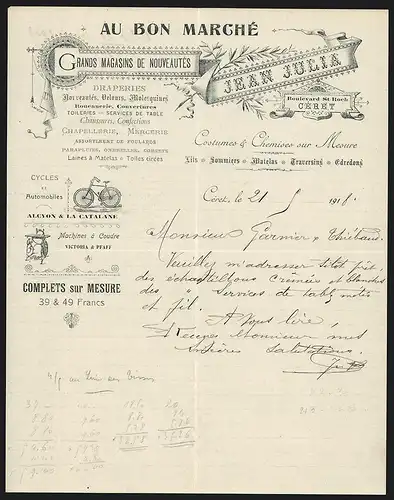 AU BON MARCHÉ
GRANDS MAGASINS DE NOUVEAUTÉS
JEAN JULIA
Boulevard St Roch
CÉRET
DRAPERIES
Nouveautés, Velours, Molesquines
Rouennerie, Couvertures
TOILERIES - SERVICES DE TABLE
Chaussures, Confections
CHAPELLERIE, MERCERIE
ASSORTIMENT DE FOULARDS
PARAPLUIES, OMBRELLES, CORSETS
Laines à Matelas - Toiles cirées
Costumes & Chemises sur Mesure
Lits - Sommiers - Matelas - Traversins - Edredons
CYCLES
et
Automobiles
ALCYON & LA CATALANE
Machines à Coudre
VICTORIA & PFAFF
COMPLETS sur MESURE
39 & 49 Francs
Céret, le 21 191
Monsieur Garnier Thiébaut
Veuillez m'adresser
des échantillons crémés et blanches
des services de table métis
et fil.
A vous lire,
Recevez Monsieur mes
sincères salutations